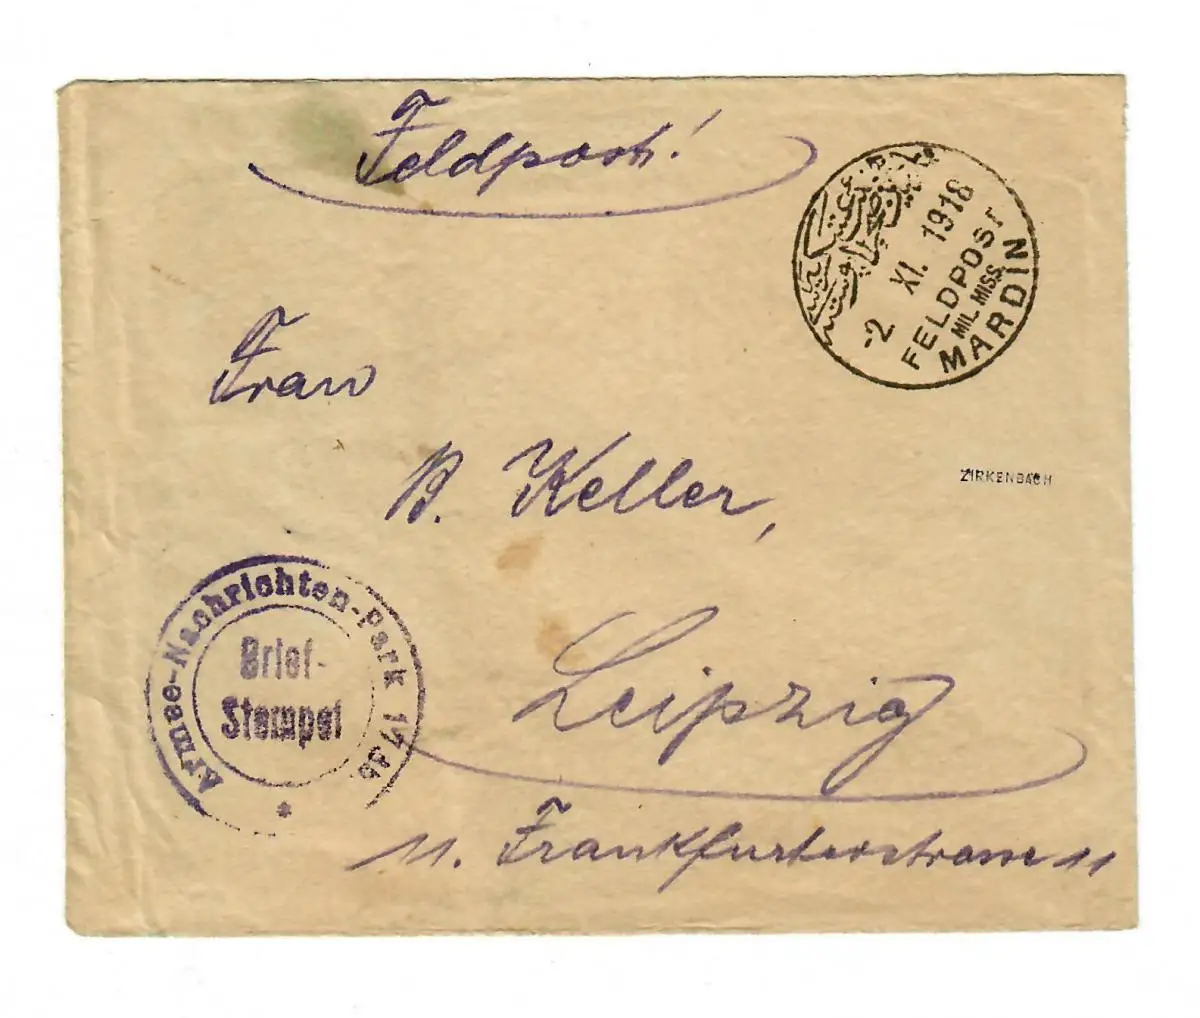 Feldpost!
-2. XI. 1918
FELDPOST
MIL. MISS.
MARDIN
Frau
B. Keller,
ZIRKENBACH
Armee-Nachrichten-Park
Brief-
Stempel
*
Leipzig
11. Frankfurterstrasse 11